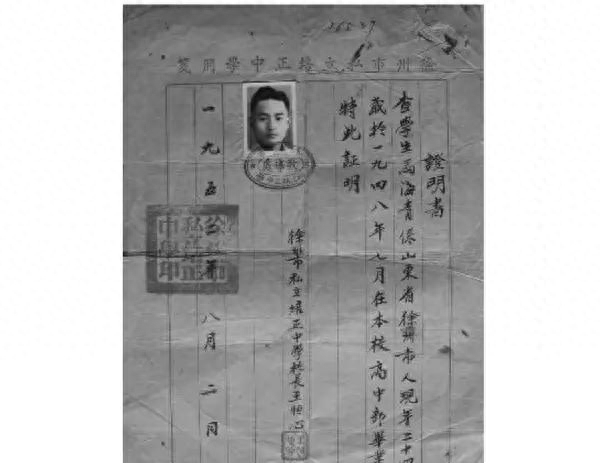 徐州市私立培正中學用箋
證明書
查學生馬海青係山東省徐州市人現年二十四
歲於一九四八年七月在本校高中部畢業
特此証明
徐州市私立培正中學校長王恒心
教導處
一九五二年八月二日